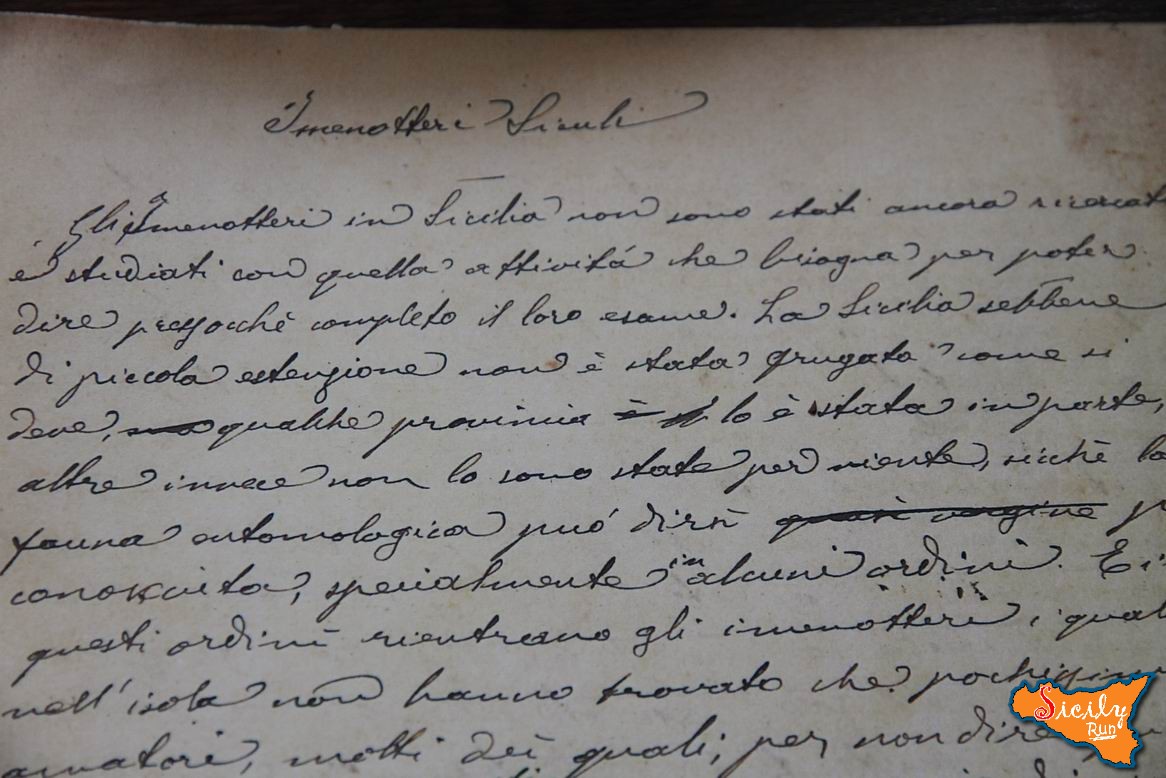 Imenotteri Siculi
Gli Imenotteri in Sicilia non sono stati ancora ricercati
e studiati con quella attività che bisogna per poter
dire pressochè completo il loro esame. La Sicilia sebbene
di piccola estenzione non è stata frugata come si
deve, ma qualche provincia è lo è stata in parte,
altre invece non lo sono state per niente, sicchè la
fauna entomologica può dirsi quasi vergine
conosciuta, specialmente in alcuni ordini. E
questi ordini rientrano gli imenotteri, i quali
nell'isola non hanno trovato che pochissimi
amatori, molti dei quali, per non dire
Sicily
Run